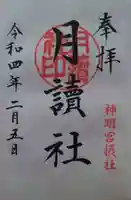 奉拝
神明宮摂社
月讀社
令和四年二月五日